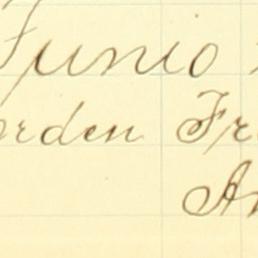 Junio
orden Fr
A